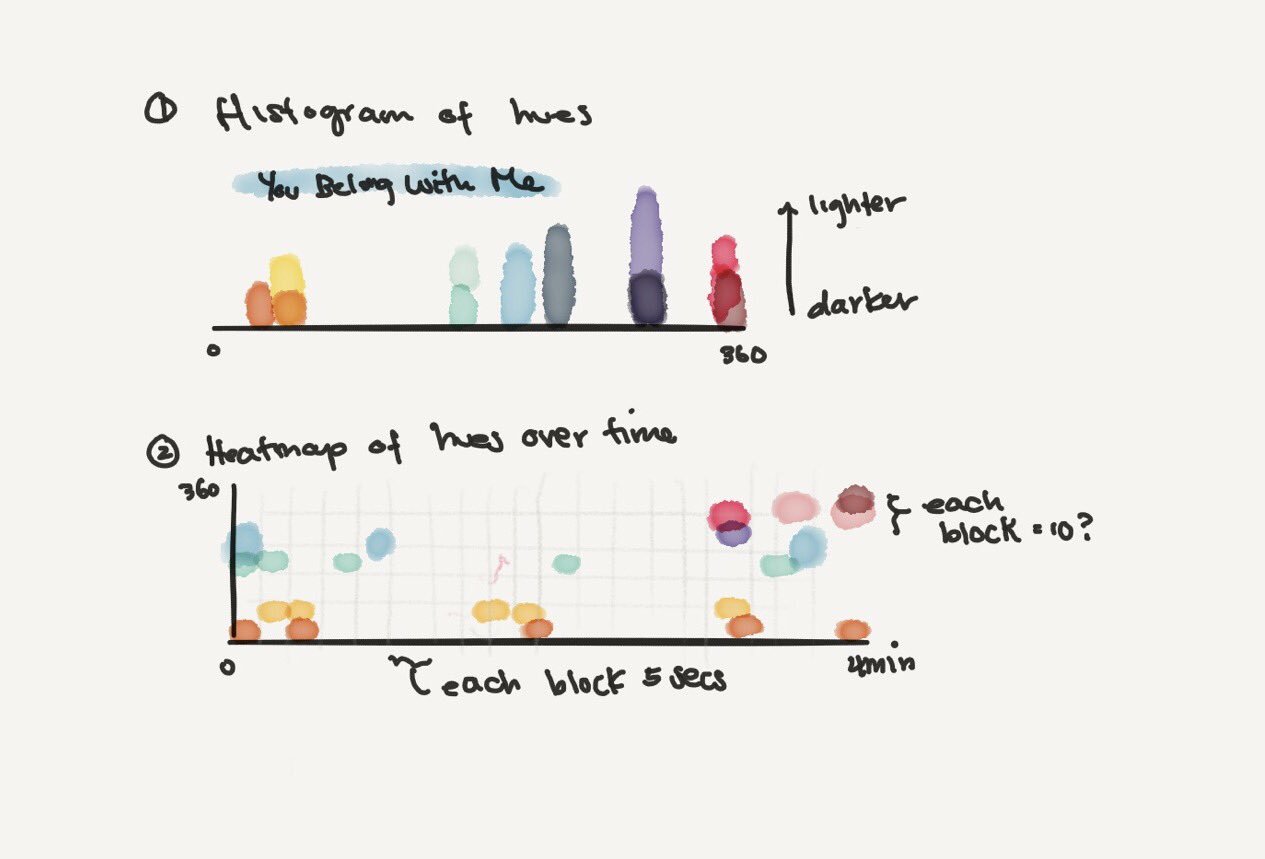 ① Histogram of hues
You Belong With Me
lighter
darker
0
360
② Heatmap of hues over time
360
each
block = 10?
0
4min
each block 5 secs